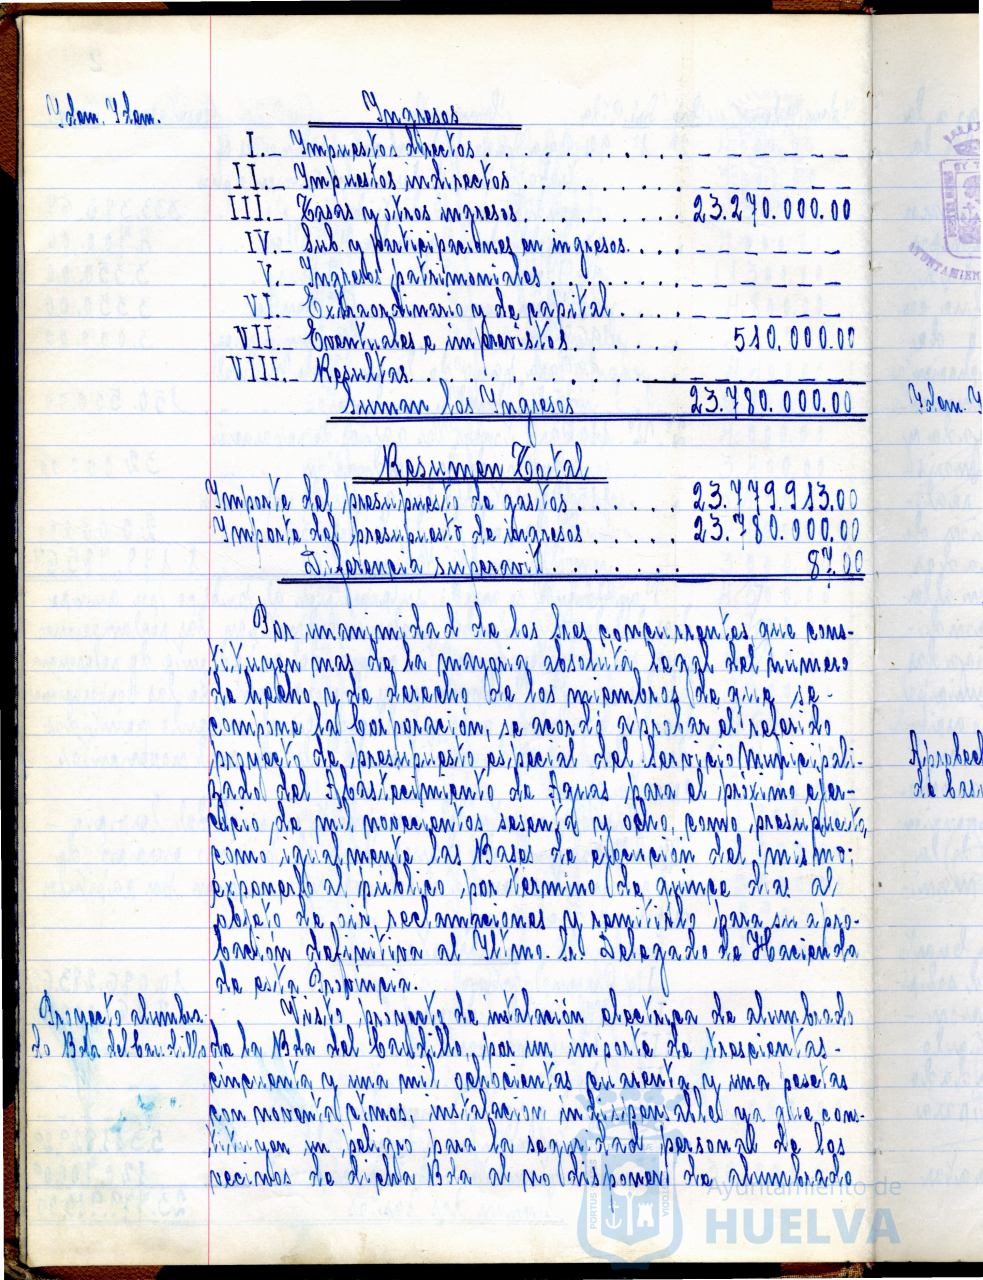 Idem. Idem.
Ingresos
I._ Impuestos directos . . . . . . . . . . . . _ _ _ _ _ _
II._ Impuestos indirectos . . . . . . . . . . _ _ _ _ _ _
III._ Tasas y otros ingresos . . . . . . . . . . 23.270.000.00
IV._ Sub. y participaciones en ingresos. . . . _ _ _ _ _ _
V._ Ingresos patrimoniales . . . . . . . . . . _ _ _ _ _ _
VI._ Extraordinario y de capital . . . . _ _ _ _ _ _
VII._ Eventuales e imprevistos. . . . . . . 510.000.00
VIII._ Resultas. . . . . . . . . . . . . _ _ _ _ _ _
Suman los Ingresos 23.780.000.00
Resumen Total
Importe del presupuesto de gastos . . . . . . 23.779.913.00
Importe del presupuesto de ingresos . . . . . . 23.780.000.00
Diferencia superavit . . . . . . . . 87.00
Por unanimidad de los Sres concurrentes, que cons-
tituyen mas de la mayoria absoluta legal del número
de hecho y de derecho de los miembros de que se
compone la Corporación, se acordó aprobar el referido
proyecto de presupuesto especial del Servicio Municipali-
zado del Abastecimiento de Aguas para el próximo ejer-
cicio de mil novecientos sesenta y ocho, como presupuesto,
como igualmente las Bases de ejecución del mismo;
exponerlo al público por término de quince dias al
objeto de oir reclamaciones y remitirlo para su apro-
bación definitiva al Iltmo. Sr. Delegado de Hacienda
de esta Provincia.
Proyecto alumbra-
do Bda del Caudillo
Visto proyecto de instalación electrica de alumbrado
de la Bda del Caudillo, por un importe de trescientas-
cincuenta y una mil ochocientas cuarenta y una pesetas
con noventa ctmos, instalacion indispensable ya que cons-
tituyen un peligro para la seguridad personal de los
vecinos de dicha Bda al no disponer de alumbrado
Ayuntamiento de
HUELVA
PORTUS
Idem. I
Aprobaci
de bas